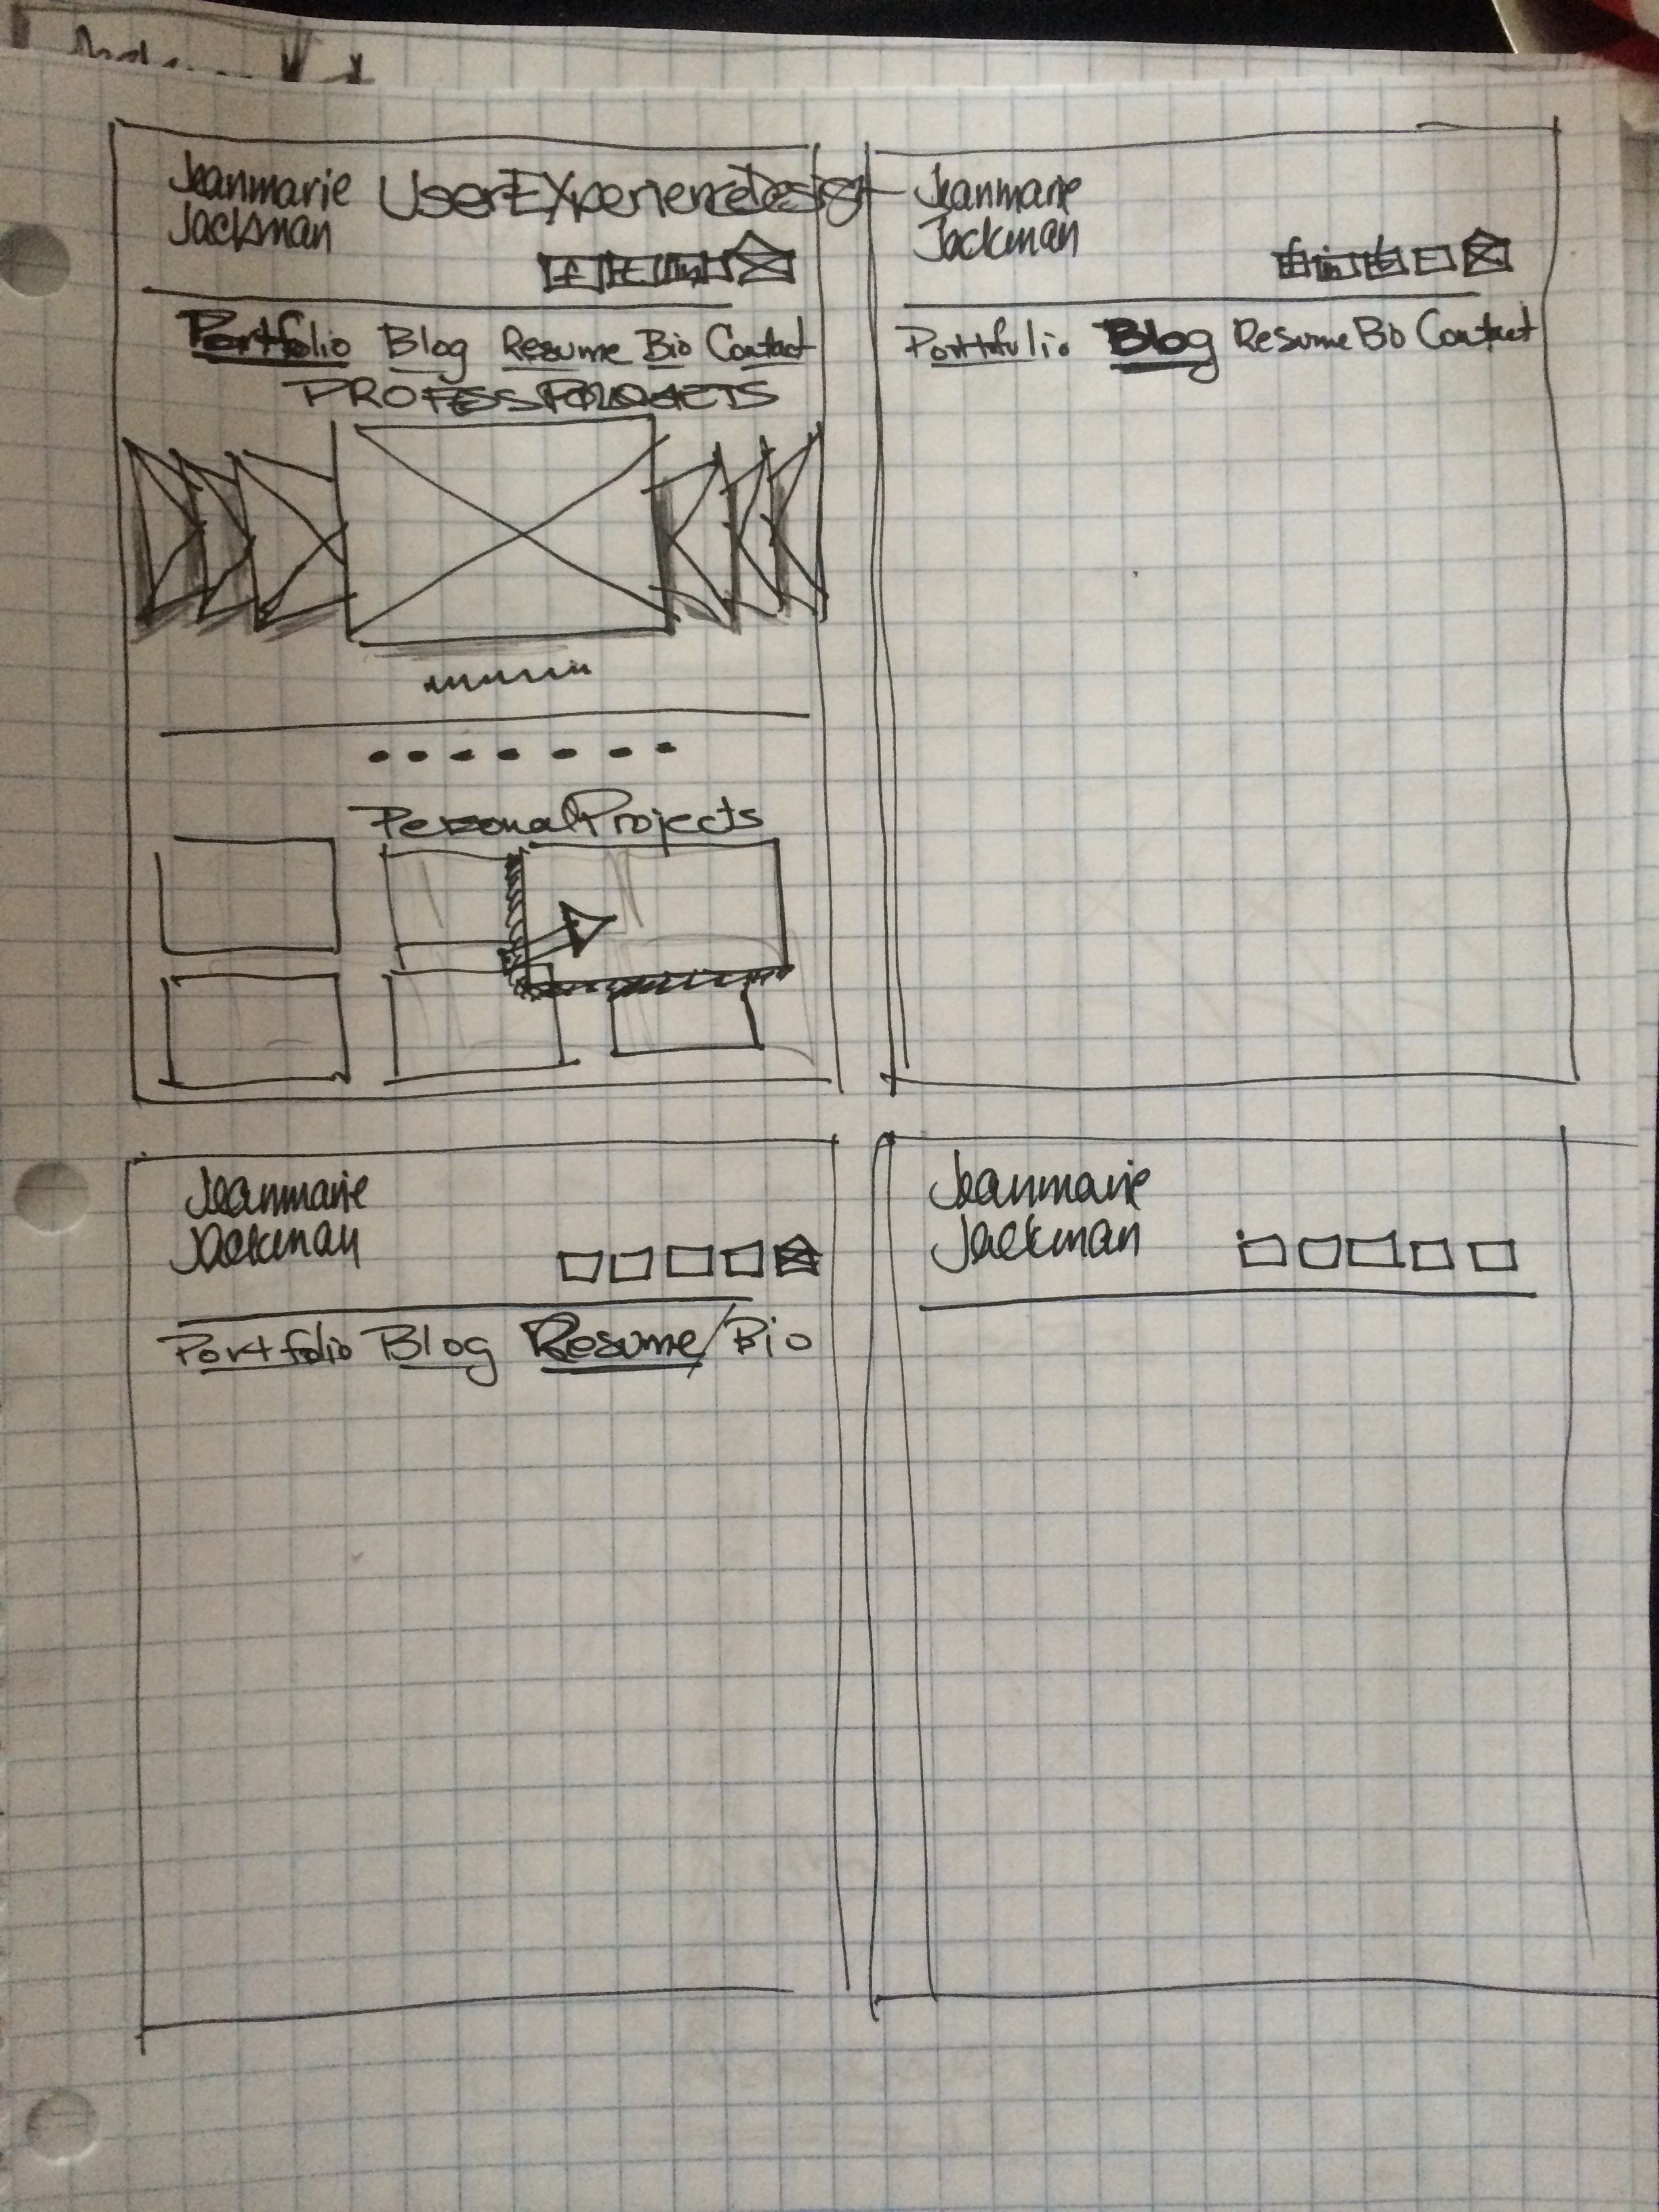 Jeanmarie
Jackman
UserExperienceDesign
f
in
Portfolio Blog Resume Bio Contact
PROFESS PROJECTS
Personal Projects
Jeanmarie
Jackman
f in
Portfolio Blog Resume Bio Contact
Jeanmarie
Jackman
Portfolio Blog Resume/Bio
Jeanmarie
Jackman